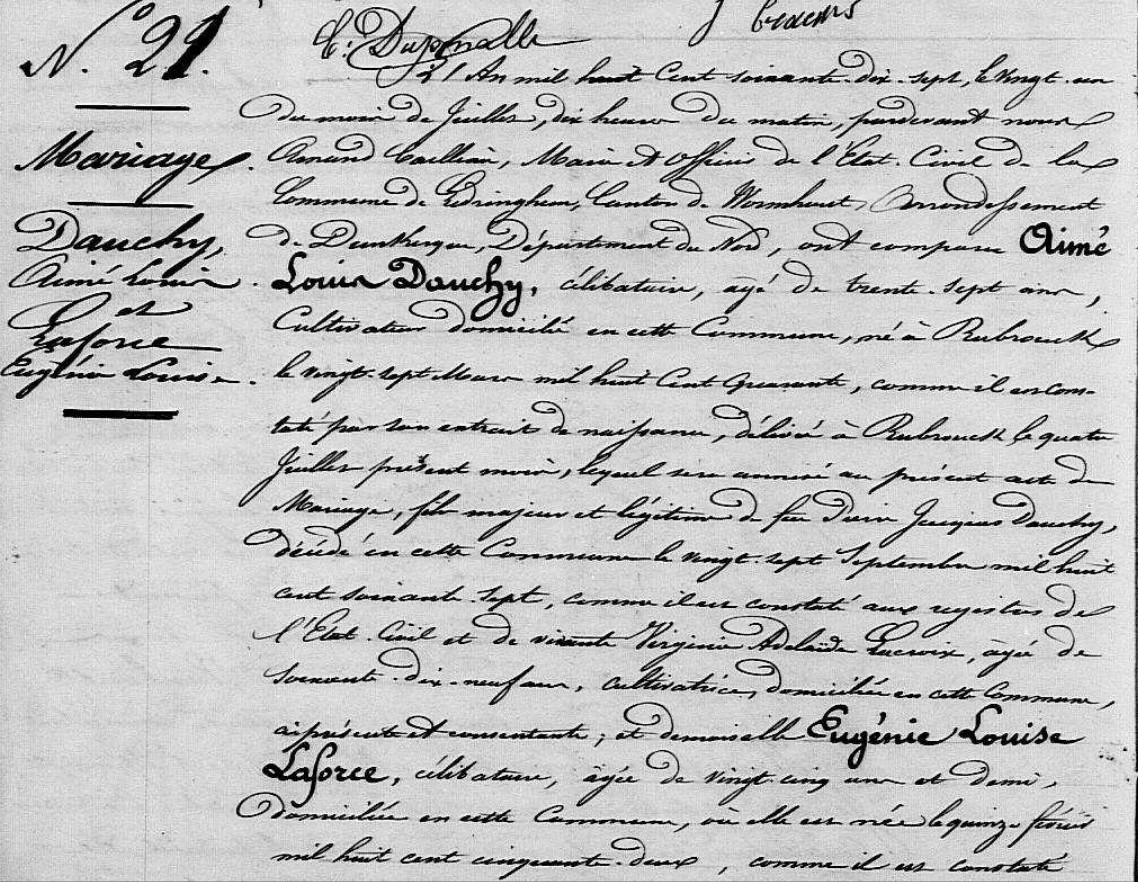 N.° 21.
Mariage.
Dauchy,
Aimé Louis
et
Laforce
Eugénie Louise.
L'An mil huit Cent soixante-dix-sept, le vingt-un
du mois de Juillet, dix heures du matin, pardevant nous
Amand Caelliau, Maire et Officier de l'Etat-Civil de la
Commune de Lédringhem, Canton de Wormhout, Arrondissement
de Dunkerque, Département du Nord, ont comparu Aimé
Louis Dauchy, célibataire, âgé de trente-sept ans,
Cultivateur domicilié en cette Commune, né à Rubrouck
le vingt-sept Mars mil huit Cent Quarante, comme il est cons-
taté par son extrait de naissance, délivré à Rubrouck le quatre
Juillet présent mois, lequel sera annexé au présent acte de
Mariage, fils majeur et légitime de feu Pierre Jacques Dauchy,
décédé en cette Commune le vingt-sept Septembre mil huit
cent soixante-sept, comme il est constaté aux registres de
l'Etat-Civil et de vivante Virginie Adelaïde Lacroix, âgée de
soixante-dix-neuf ans, cultivatrice, domiciliée en cette Commune,
ci présente et consentante; et demoiselle Eugénie Louise
Laforce, célibataire, âgée de vingt-cinq ans et demi,
domiciliée en cette Commune, où elle est née le quinze février
mil huit cent cinquante-deux, comme il est constaté